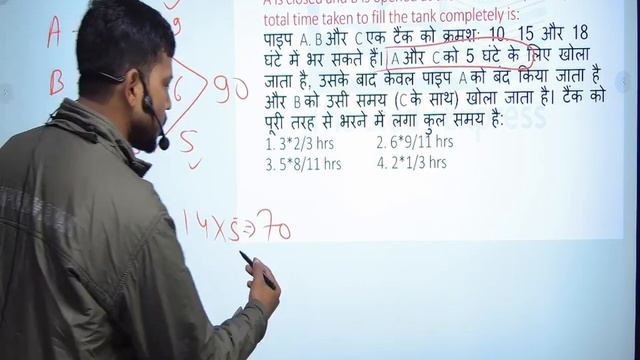 A is closed and B is opened at the
total time taken to fill the tank completely is:
पाइप A. B और C एक टैंक को क्रमशः 10, 15 और 18
घंटे में भर सकते हैं। A और C को 5 घंटे के लिए खोला
जाता है, उसके बाद केवल पाइप A को बंद किया जाता है
और B को उसी समय (C के साथ) खोला जाता है। टैंक को
पूरी तरह से भरने में लगा कुल समय है:
1. 3*2/3 hrs 2. 6*9/11 hrs
3. 5*8/11 hrs 4. 2*1/3 hrs
A 9
B 6 90
5
14X5⇒70